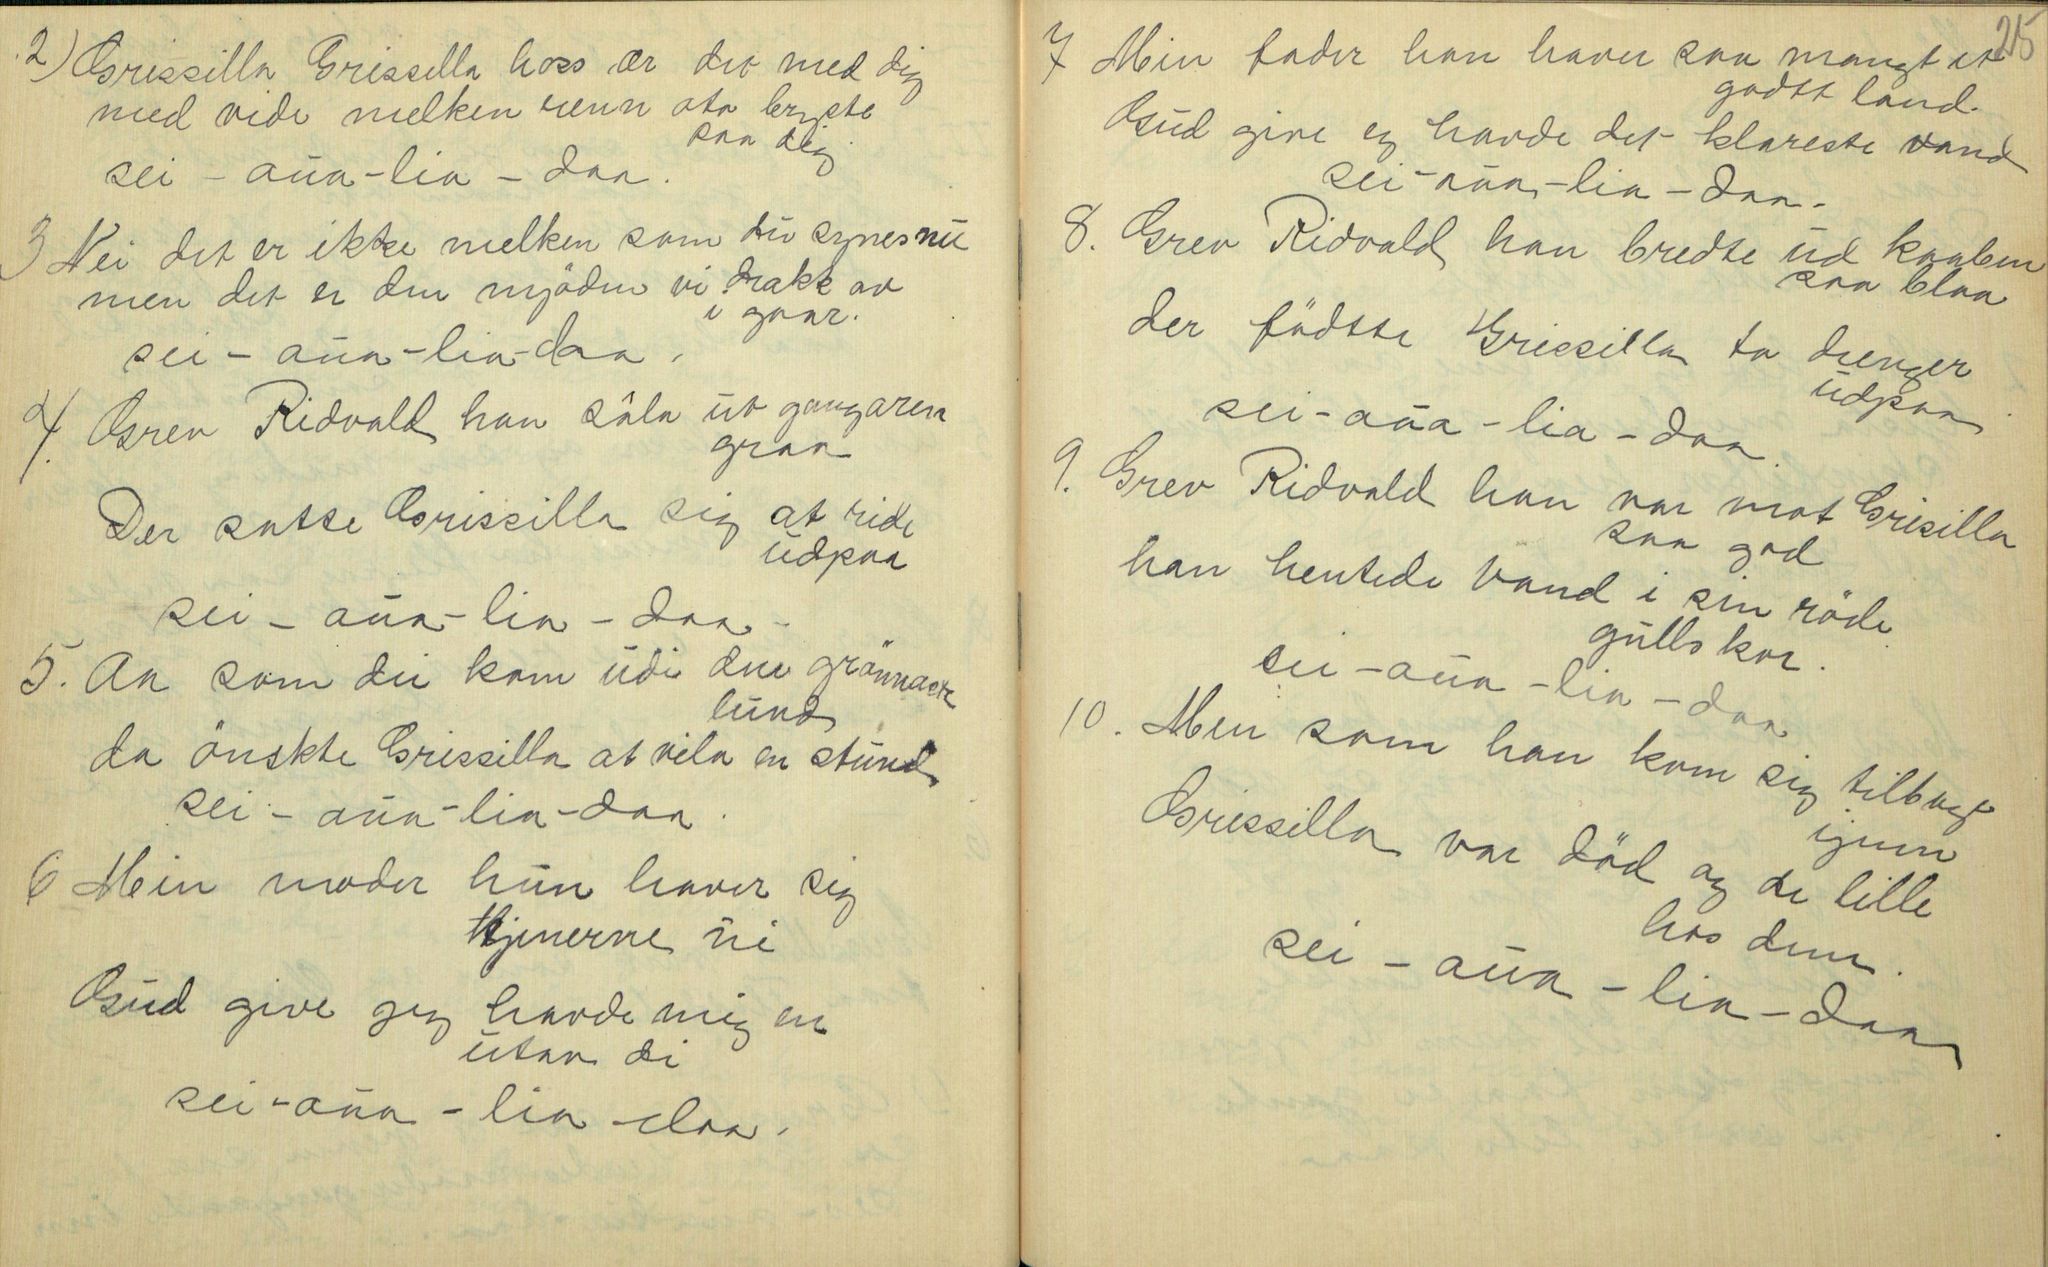 2) Grissilla Grissilla hoss er det med dig
med vide melken renn ota bryste
saa dig
sei - aūa - lia - daa.
3 Nei det er ikke melken som dū synes nū
men det er den mjöden vi drakk av
i gaar.
sei - aūa - lia - daa.
4. Grev Ridvald han sāla ūt gangaren
graa
Der satte Grissilla sig at ride
ūdpaa
sei - aūa - lia - daa -
5. Aa som dei kom ūdi den grönnaste
lūnd
da önskte Grissilla at vila en stūnd
sei - aūa - lia - daa.
6 Min moder hūn haver sig
tjenerne ni
Gūd give jeg havde mig en
ūtav di
sei - aūa - lia - daa.
25
7 Min fader han haver saa mangt et
godtt land.
Gūd give eg havde det klareste vand
sei - aūa - lia - daa.
8. Grev Ridvald han bredte ūd kaaben
saa blaa
der födtte Grissilla to drenger
ūdpaa
sei - aūa - lia - daa.
9. Grev Ridvald han var mot Grisilla
saa god
han hentede vand i sin röde
gūlls kor.
sei - aūa - lia - daa
10. Men som han kom sig tilbage
igjenn
Grissilla var död og de lille
hos denn.
sei - aūa - lia - daa